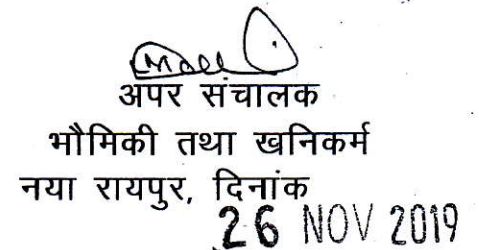 अपर संचालक
भौमिकी तथा खनिकर्म
नया रायपुर, दिनांक
26 NOV 2019